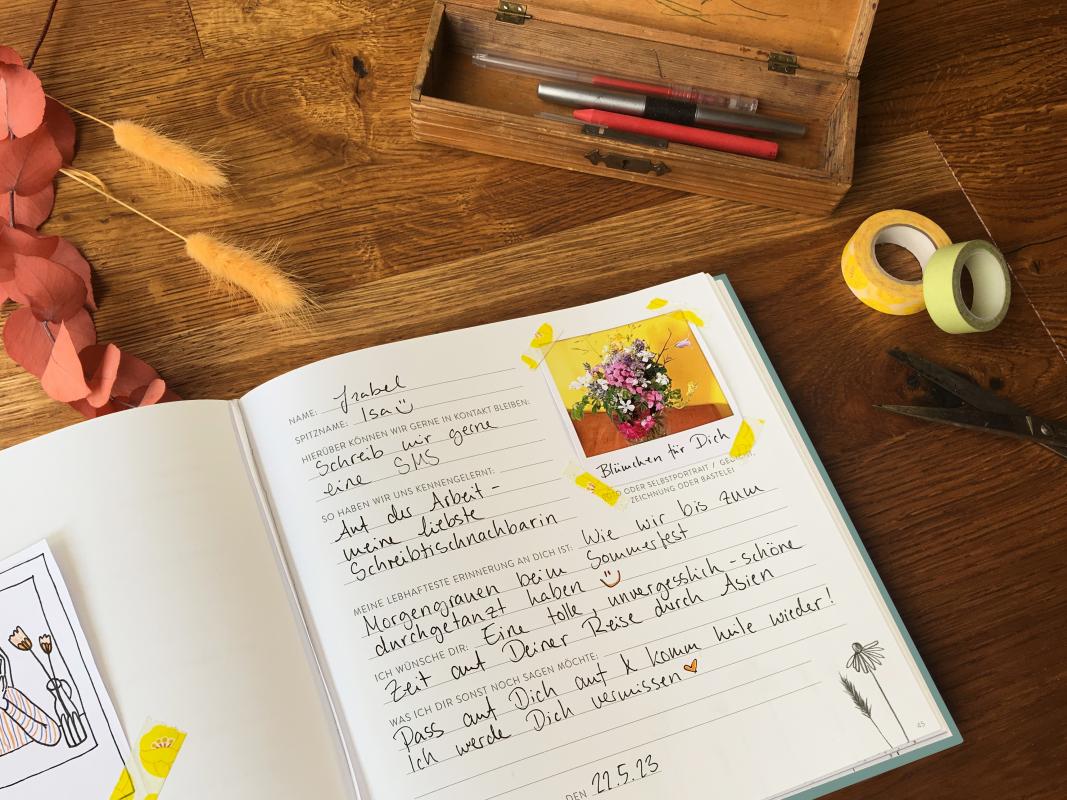 NAME: Isabel
SPITZNAME: Isa
HIERÜBER KÖNNEN WIR GERNE IN KONTAKT BLEIBEN:
Schreib mir gerne
eine SMS
SO HABEN WIR UNS KENNENGELERNT:
Auf der Arbeit -
meine liebste
Schreibtischnachbarin
Blümchen für Dich
FOTO ODER SELBSTPORTRAIT / GEMALT,
ZEICHNUNG ODER BASTELEI
MEINE LEBHAFTESTE ERINNERUNG AN DICH IST: Wie wir bis zum
Morgengrauen beim Sommerfest
durchgetanzt haben
ICH WÜNSCHE DIR: Eine tolle, unvergesslich-schöne
Zeit auf Deiner Reise durch Asien
WAS ICH DIR SONST NOCH SAGEN MÖCHTE:
Pass auf Dich auf & komm heile wieder!
Ich werde Dich vermissen
DEN 22.5.23
45